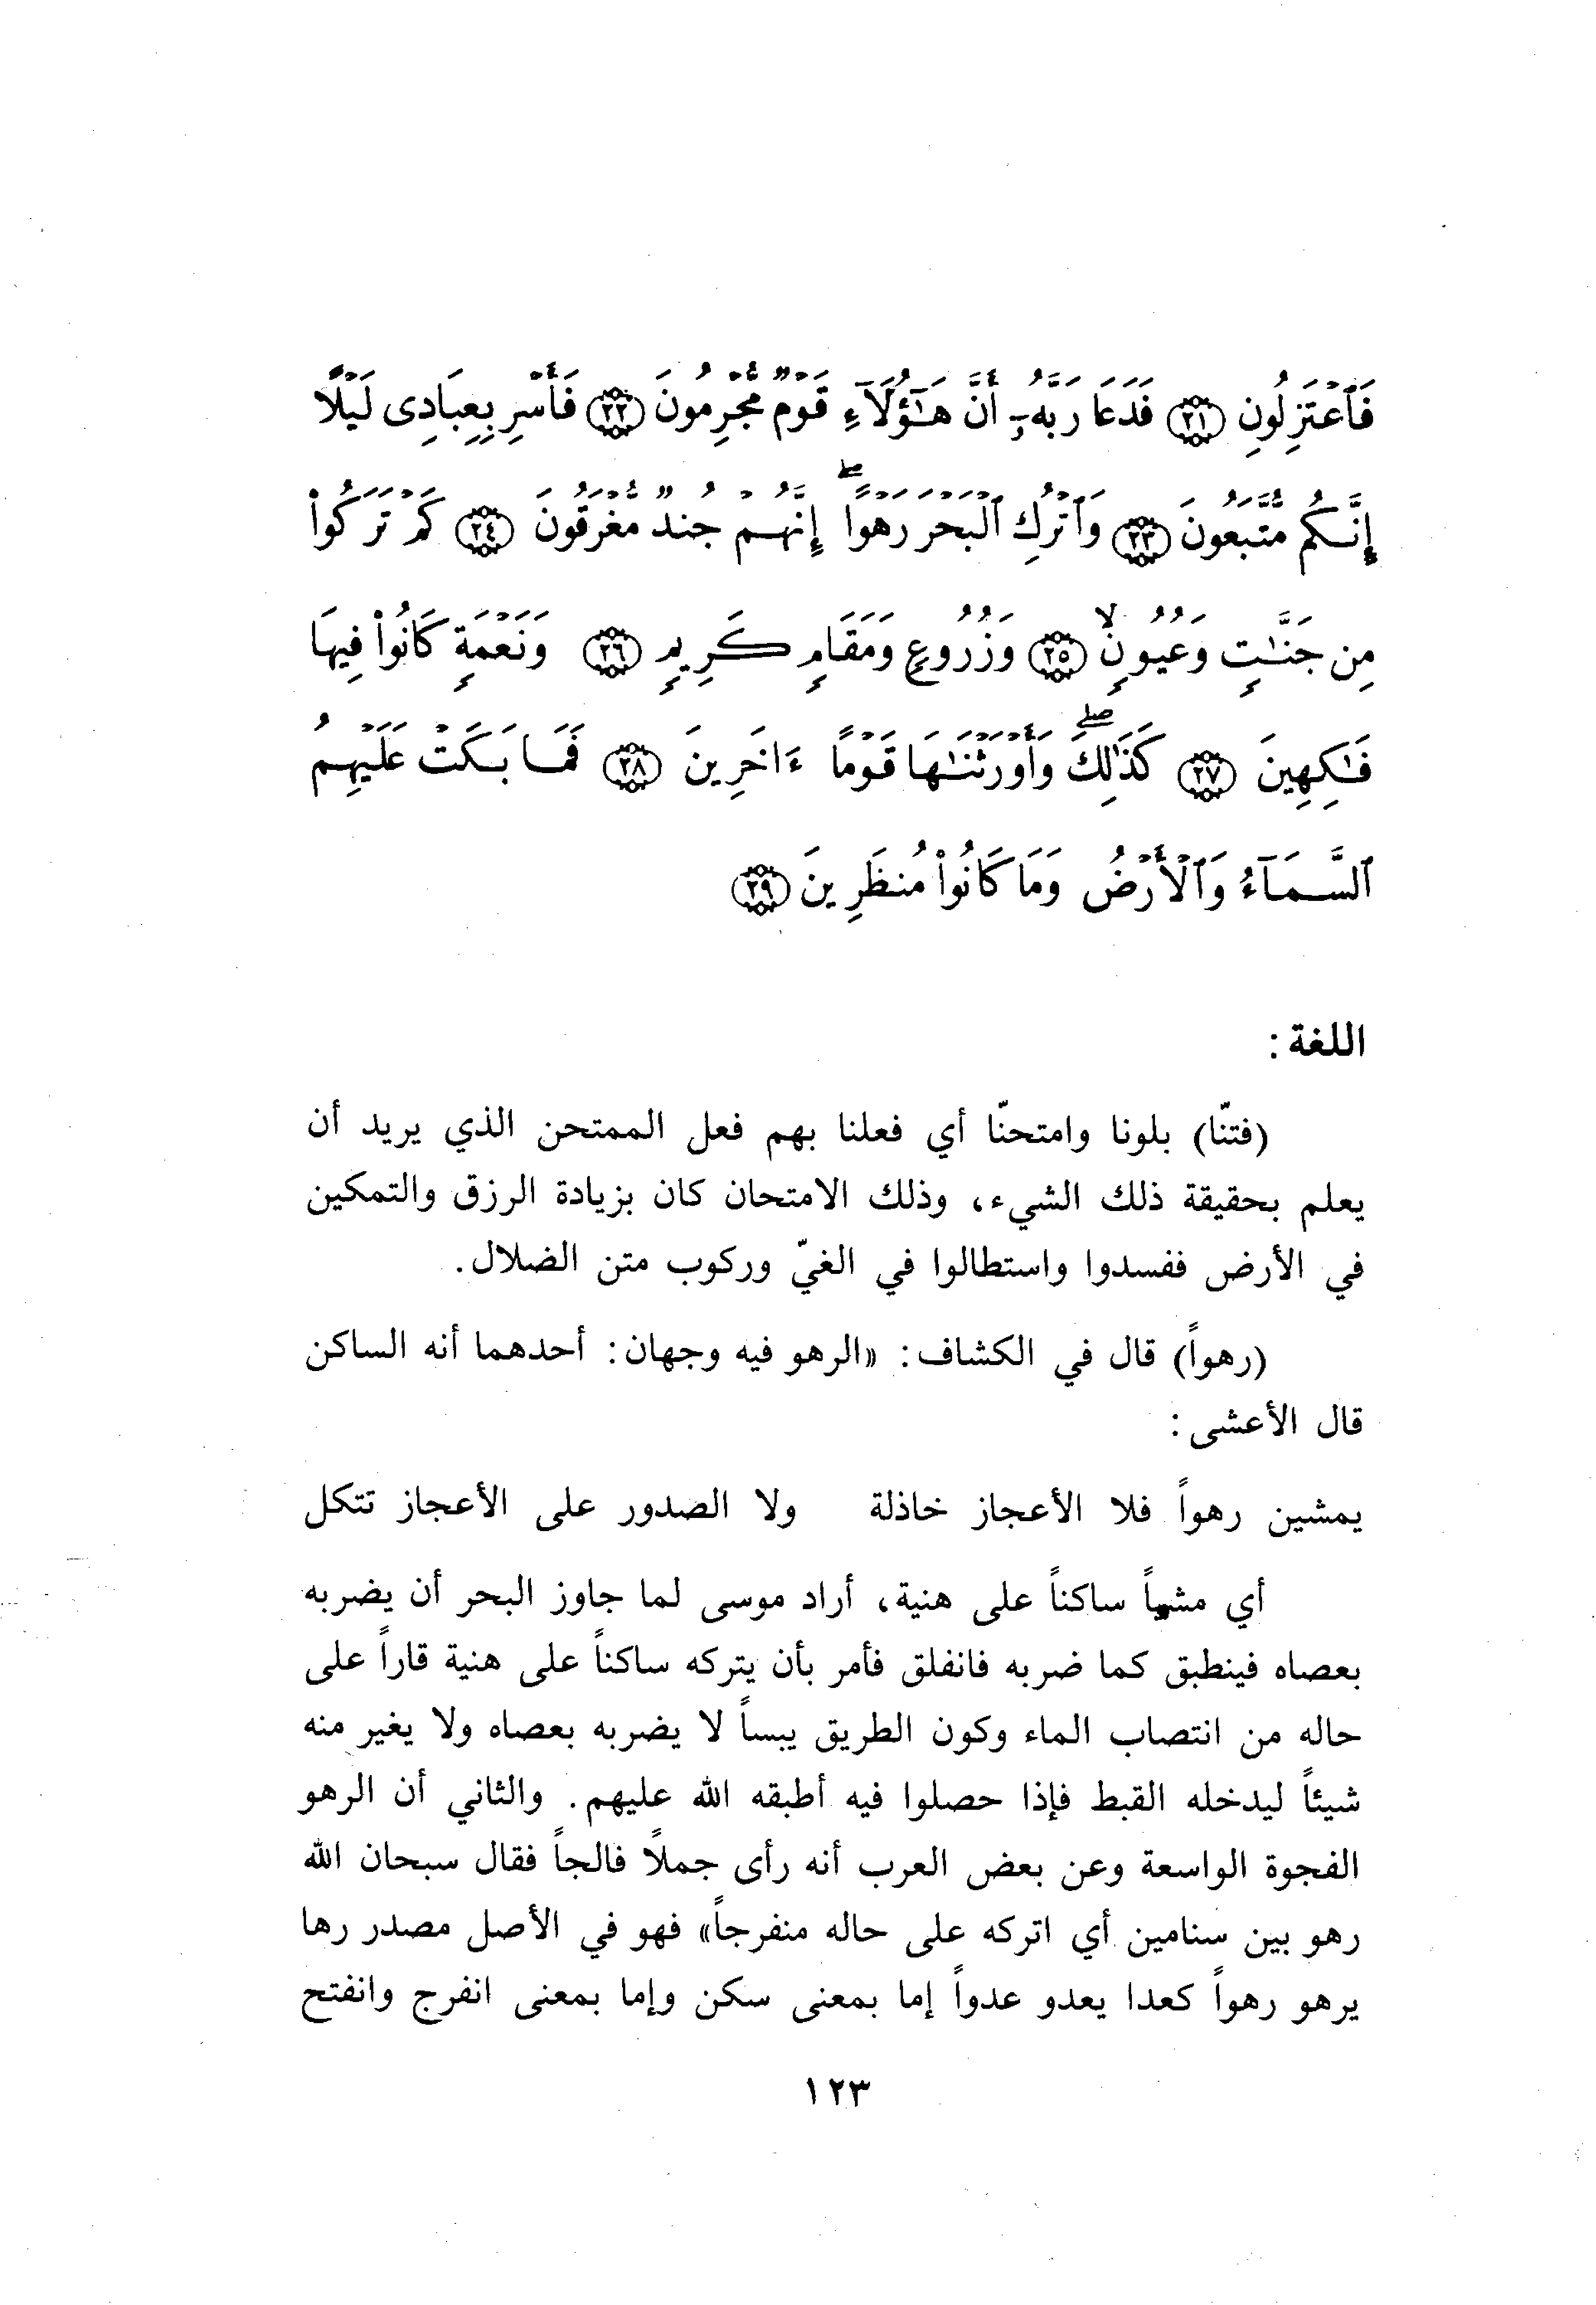 فَٱعْتَزِلُونِ ٢١ فَدَعَا رَبَّهُۥٓ أَنَّ هَـٰٓؤُلَآءِ قَوْمٌ مُّجْرِمُونَ ٢٢ فَأَسْرِ بِعِبَادِى لَيْلًا
إِنَّكُم مُّتَّبَعُونَ ٢٣ وَٱتْرُكِ ٱلْبَحْرَ رَهْوًا ۖ إِنَّهُمْ جُندٌ مُّغْرَقُونَ ٢٤ كَمْ تَرَكُوا۟
مِن جَنَّـٰتٍ وَعُيُونٍ ۙ ٢٥ وَزُرُوعٍ وَمَقَامٍ كَرِيمٍ ٢٦ وَنَعْمَةٍ كَانُوا۟ فِيهَا
فَـٰكِهِينَ ٢٧ كَذَٰلِكَ ۖ وَأَوْرَثْنَـٰهَا قَوْمًا ءَاخَرِينَ ٢٨ فَمَا بَكَتْ عَلَيْهِمُ
ٱلسَّمَآءُ وَٱلْأَرْضُ وَمَا كَانُوا۟ مُنظَرِينَ ٢٩
اللغة:
(فتنّا) بلونا وامتحنّا أي فعلنا بهم فعل الممتحن الذي يريد أن
يعلم بحقيقة ذلك الشيء، وذلك الامتحان كان بزيادة الرزق والتمكين
في الأرض ففسدوا واستطالوا في الغيّ وركوب متن الضلال.
(رهواً) قال في الكشاف: «الرهو فيه وجهان: أحدهما أنه الساكن
قال الأعشى:
يمشين رهواً فلا الأعجاز خاذلة ولا الصدور على الأعجاز تتكل
أي مشياً ساكناً على هنية، أراد موسى لما جاوز البحر أن يضربه
بعصاه فينطبق كما ضربه فانفلق فأمر بأن يتركه ساكناً على هنية قاراً على
حاله من انتصاب الماء وكون الطريق يبساً لا يضربه بعصاه ولا يغير منه
شيئاً ليدخله القبط فإذا حصلوا فيه أطبقه الله عليهم. والثاني أن الرهو
الفجوة الواسعة وعن بعض العرب أنه رأى جملاً فالجاً فقال سبحان الله
رهو بين سنامين أي اتركه على حاله منفرجاً» فهو في الأصل مصدر رها
يرهو رهواً كعدا يعدو عدواً إما بمعنى سكن وإما بمعنى انفرج وانفتح
١٢٣